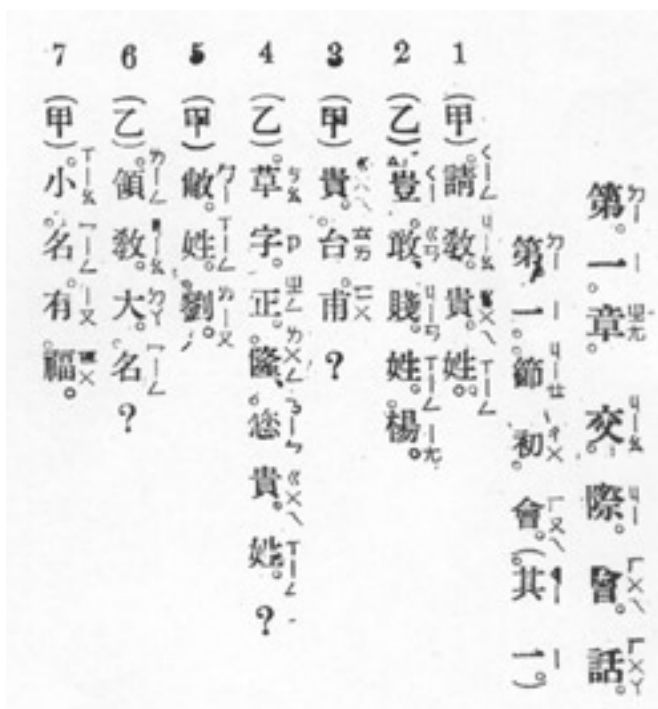 第一章 交際會話
第一節 初會（其一）
1（甲）請教貴姓。
2（乙）豈敢、賤姓楊。
3（甲）貴台甫？
4（乙）草字正隆、您貴姓？
5（甲）敝姓劉。
6（乙）領教大名？
7（甲）小名有福。